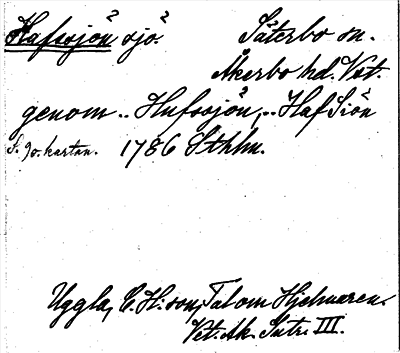 Hafssjön² sjö.²
Säterbo sn.
Åkerbo hd. Vst.
genom .. Hafssjön², .. Haf Siön
S. 90. kartan. 1786 Sthlm.
Uggla, C. H:son, Tal om Hjelmaren.
Vet. Ak. Intr. III.